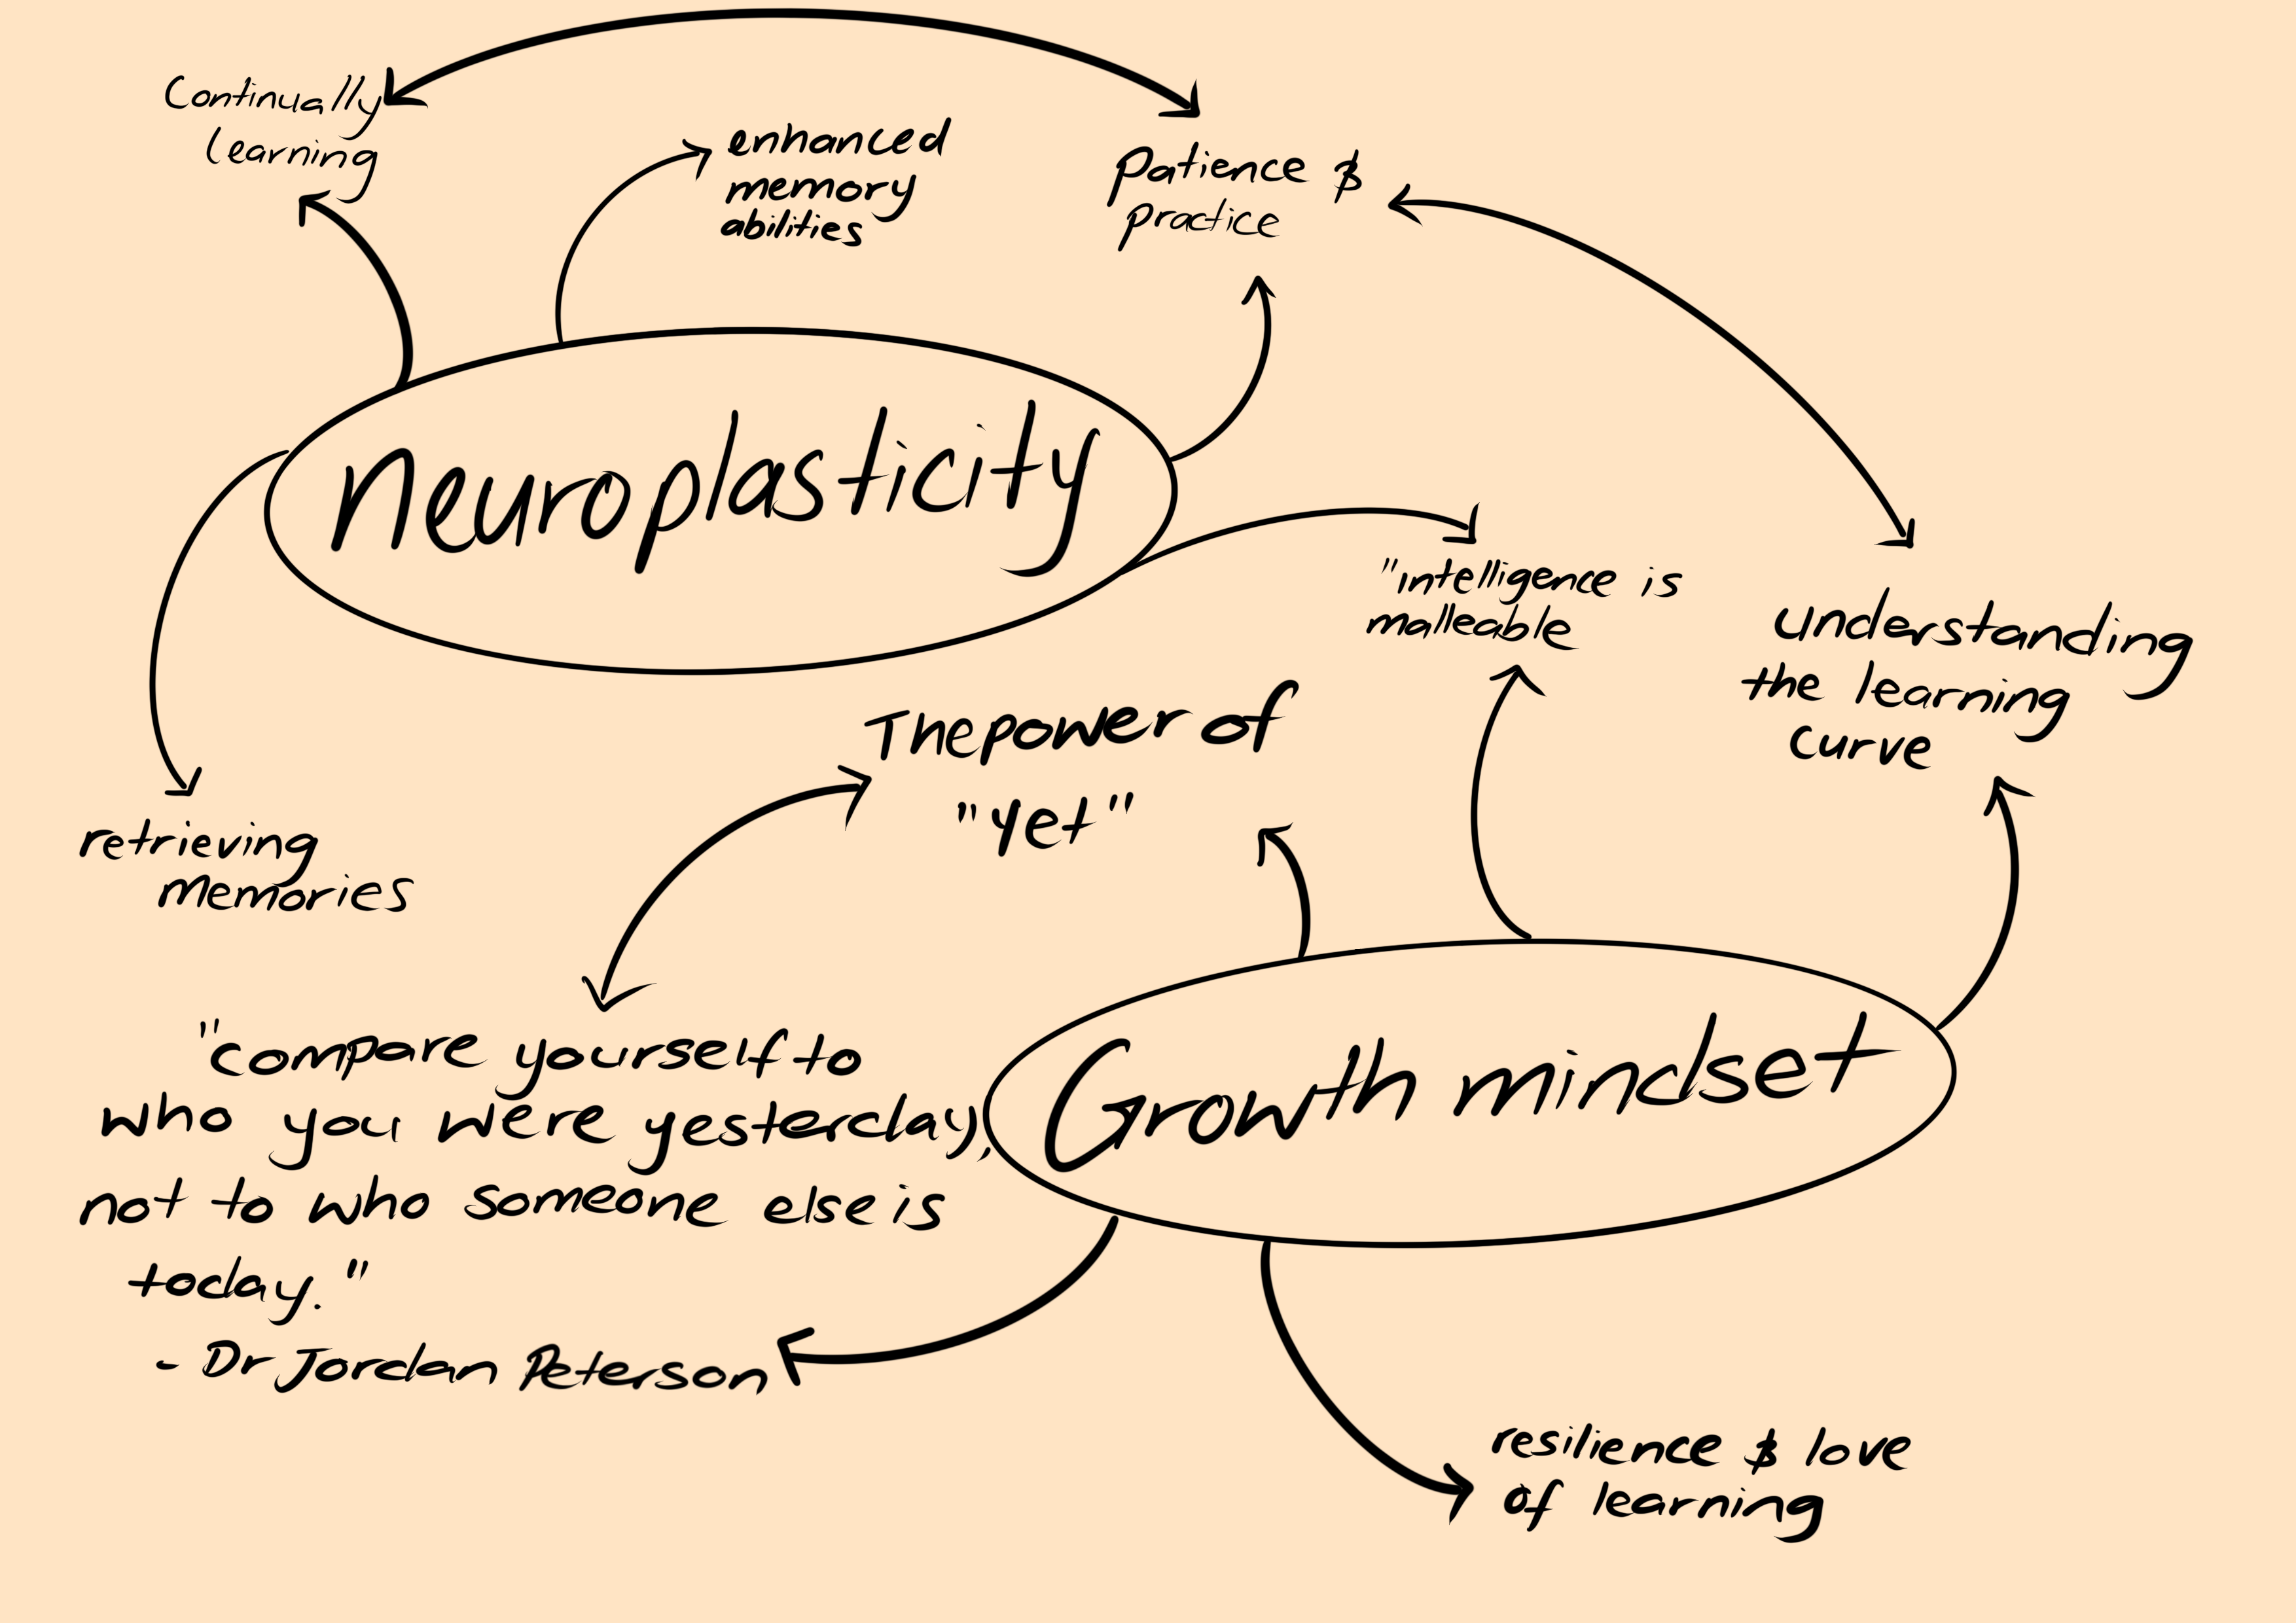 Continually
learning
enhanced
memory
abilities
Patience &
practice
Neuroplasticity
"intelligence is
malleable
understanding
the learning
curve
The power of
"Yet"
retrieving
memories
"compare yourself to
who you were yesterday,
not to who someone else is
today."
- Dr Jordan Peterson
Growth mindset
resilience & love
of learning